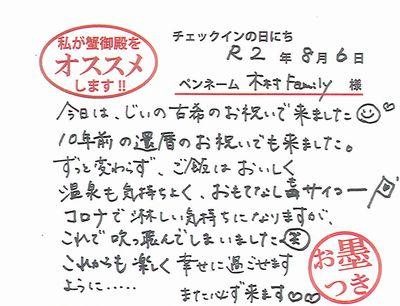 私が蟹御殿を
オススメ
します!!
チェックインの日にち
R2 年 8月 6日
ペンネーム 木村Family 様
今日は、じいの古希のお祝いで来ました
10年前の還暦のお祝いでも来ました。
ずっと変わらず、ご飯はおいしく
温泉も気持ちよく、おもてなしも サイコー
コロナで淋しい気持ちになりますが、
これで吹っ飛んでしまいました 笑
これからも楽しく幸せに過ごせます
ように……
また必ず来ます
お墨
つき